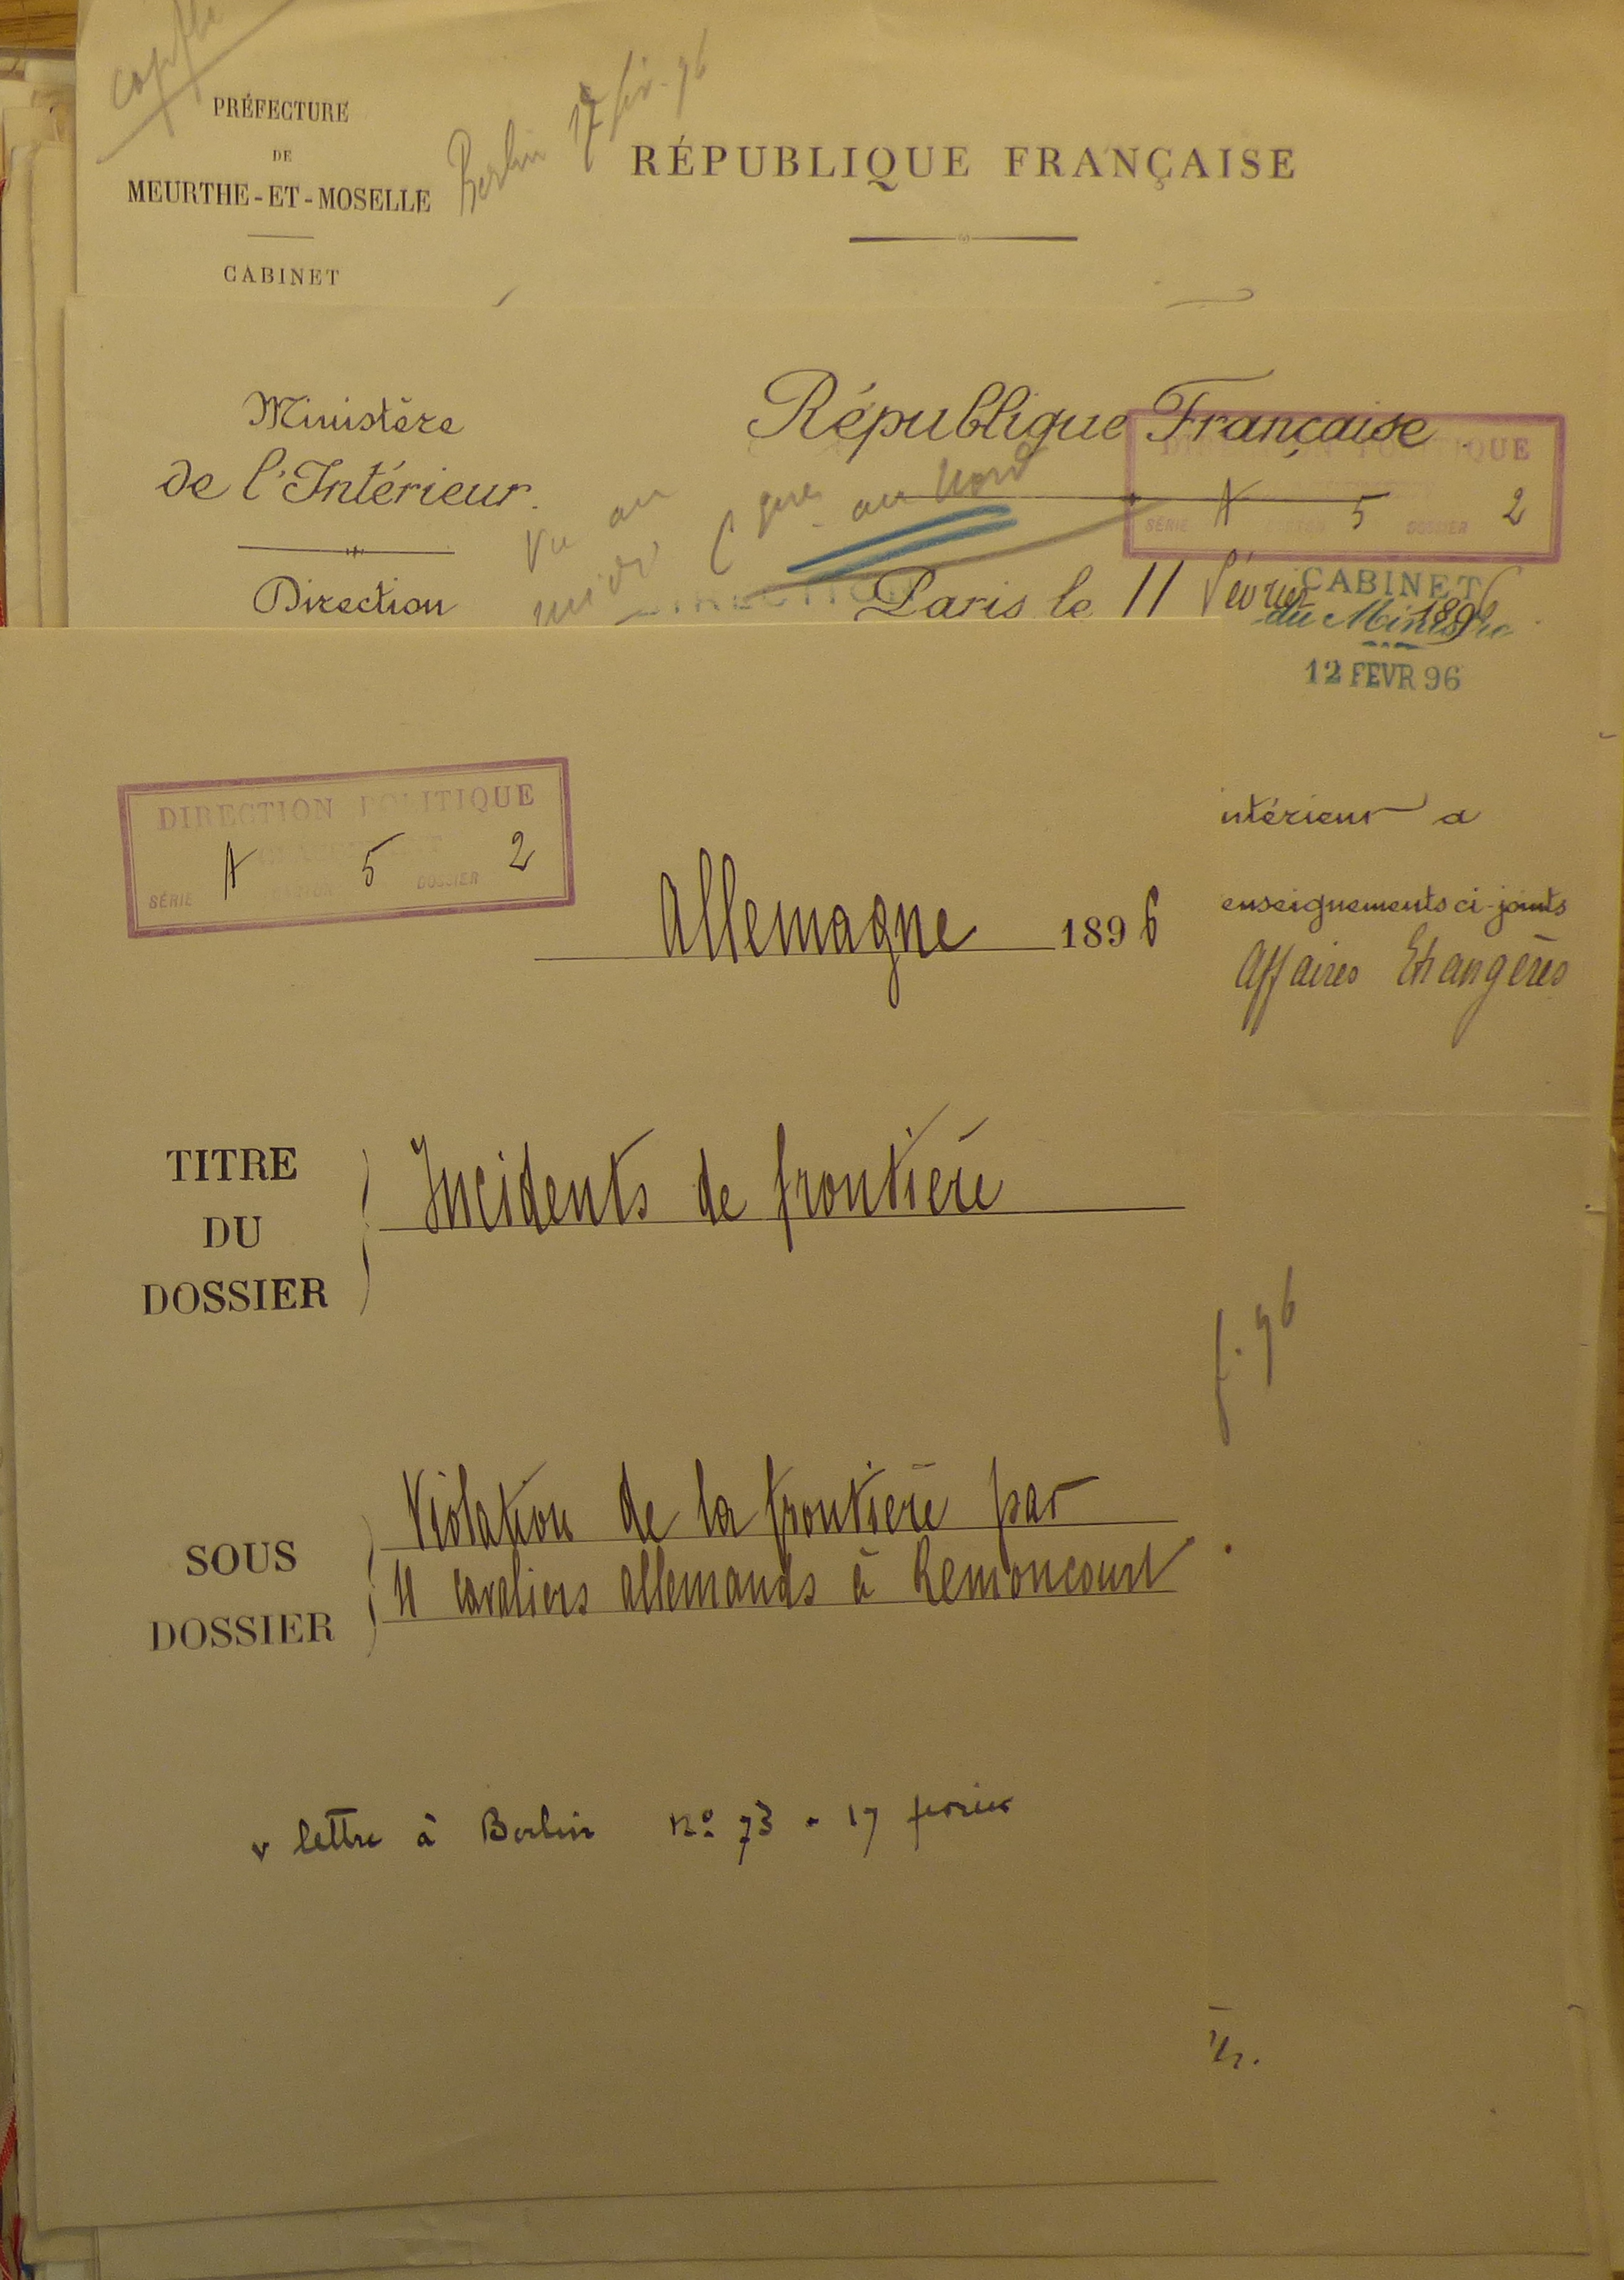 copie
PRÉFECTURE
DE
MEURTHE-ET-MOSELLE
CABINET
Berlin 17 fév. 96
RÉPUBLIQUE FRANÇAISE
Ministère
de l'Intérieur.
Direction
République Française
DIRECTION POLITIQUE
SÉRIE A CARTON 5 DOSSIER 2
Vu au
au Nord
DIRECTION
Paris le 11 février 1896
CABINET
du Ministre
12 FEVR 96
DIRECTION POLITIQUE
SÉRIE A CARTON 5 DOSSIER 2
intérieur a
enseignements ci-joints
Affaires Etrangères
Allemagne 1896
TITRE
DU
DOSSIER
Incidents de frontière
f. 96
SOUS
DOSSIER
Violation de la frontière par
4 cavaliers allemands à Remoncourt
v lettre à Berlin nº 73 - 17 fevrier